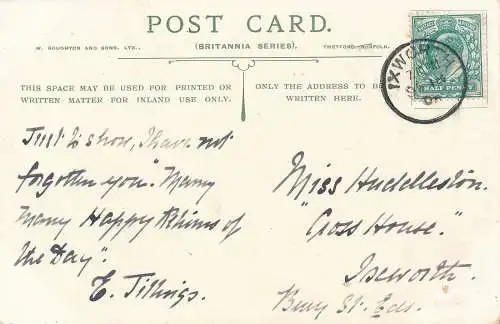 POST CARD.
W. BOUGHTON AND SONS, LTD., (BRITANNIA SERIES). THETFORD, NORFOLK.
THIS SPACE MAY BE USED FOR PRINTED OR
WRITTEN MATTER FOR INLAND USE ONLY.
ONLY THE ADDRESS TO BE
WRITTEN HERE.
HALF PENNY
IXWORTH
Just to show, I have not
forgotten you". Many
Many Happy Returns of
the Day".
E. Tillings.
"Miss Huddleston.
"Cross House."
Ixworth.
Bury St. Eds.